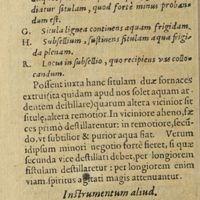 diatur situlam, quod fortè minus proban-
dum est.
G. Situla lignea continens aquam frigidam.
H. Subsellium, sustinens situlam aqua frigi-
da plenam.
R. Locus in subsellio, quo recipiens vas collo-
candum.
Possent iuxta hanc situlam duæ fornaces
extrui (ita quidam apud nos solet aquam ar-
dentem destillare) quarum altera vicinior sit
situlæ, altera remotior. In viciniore aheno, fæ-
ces primò destillarentur: in remotiore, secundò,
vt subtilior & purior aqua fiat. Verum
idipsum minori negotio fortè fieret, si quæ
secunda vice destillari debet, per longiorem
fistulam destillaretur: per longiorem enim
viam spiritus agitati magis attenuantur.
Instrumentum aliud.